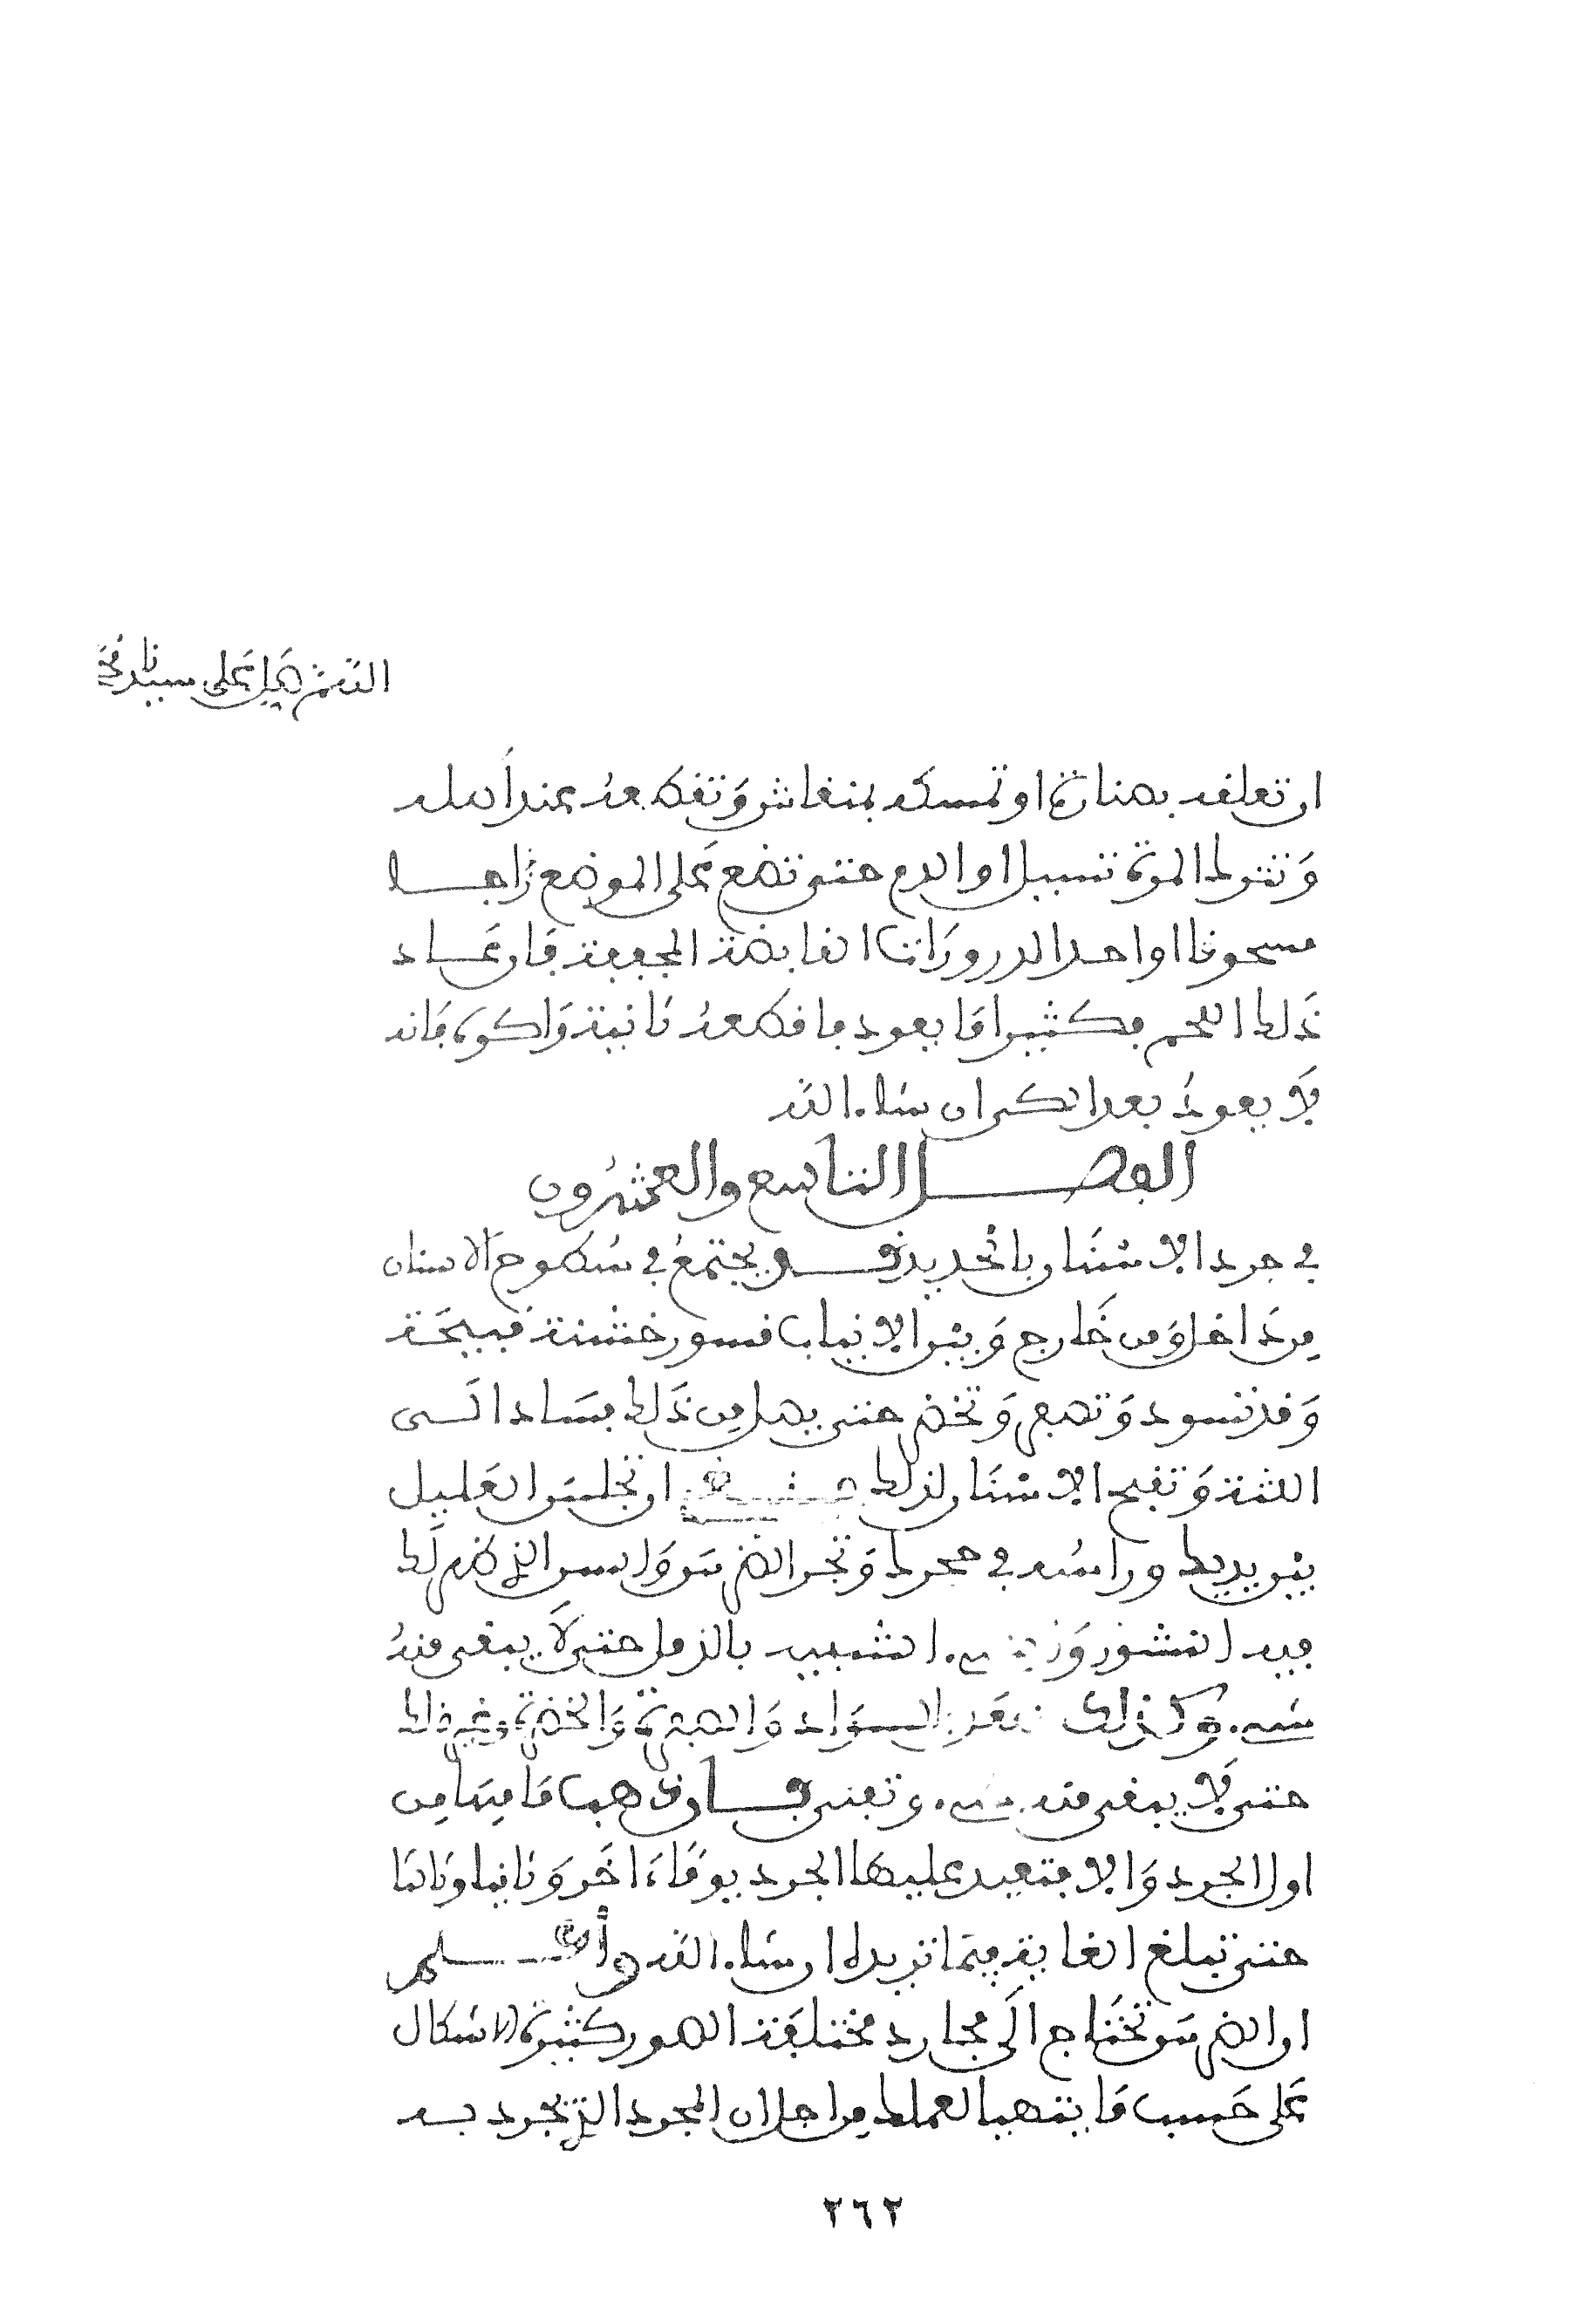 اللهم صل على سيدنا محمد
ان تعلقه بصنارة او تمسكه بمنقاش وتقطعه عند اصله
وتترك المدة تسيل او الدم حتى تضع على الموضع زاجا
مسحوقا او احد الدرورات القابضة المجففة فان عاد
ذلك اللحم فكثيرا ما يعود فاقطعه ثانية واكوه فانه
لا يعود بعد الكي ان شاء الله
الفصل التاسع والعشرون
في جرد الاسنان بالحديد قد يجتمع في سطوح الاسنان
من داخل ومن خارج وبين الانياب قشور خشنة قبيحة
وقد تسود وتصفر وتخضر حتى يصل من ذلك فساد الى
اللثة وتقبح الاسنان لذلك فينبغي ان تجلس العليل
بين يديك وراسه في حجرك وتجرد الضرس والسن الذي ظهر لك
فيه القشور والشيء الشبيه بالرمل حتى لا يبقى منه
شيء وكذلك تفعل بالسواد والصفرة والخضرة وغير ذلك
حتى لا يبقى منه شيء وتنقى فان ذهب ما فيها من
اول الجرد والا فتعيد عليها الجرد يوما اخر وثانيا وثالثا
حتى تبلغ الغاية فيما تريده ان شاء الله واعلم
ان الضرس تحتاج الى مجارد مختلفة الصور كثيرة الاشكال
على حسب ما يتهيا لعملك من اجل ان المجرد الذي يجرد به
٢٦٢